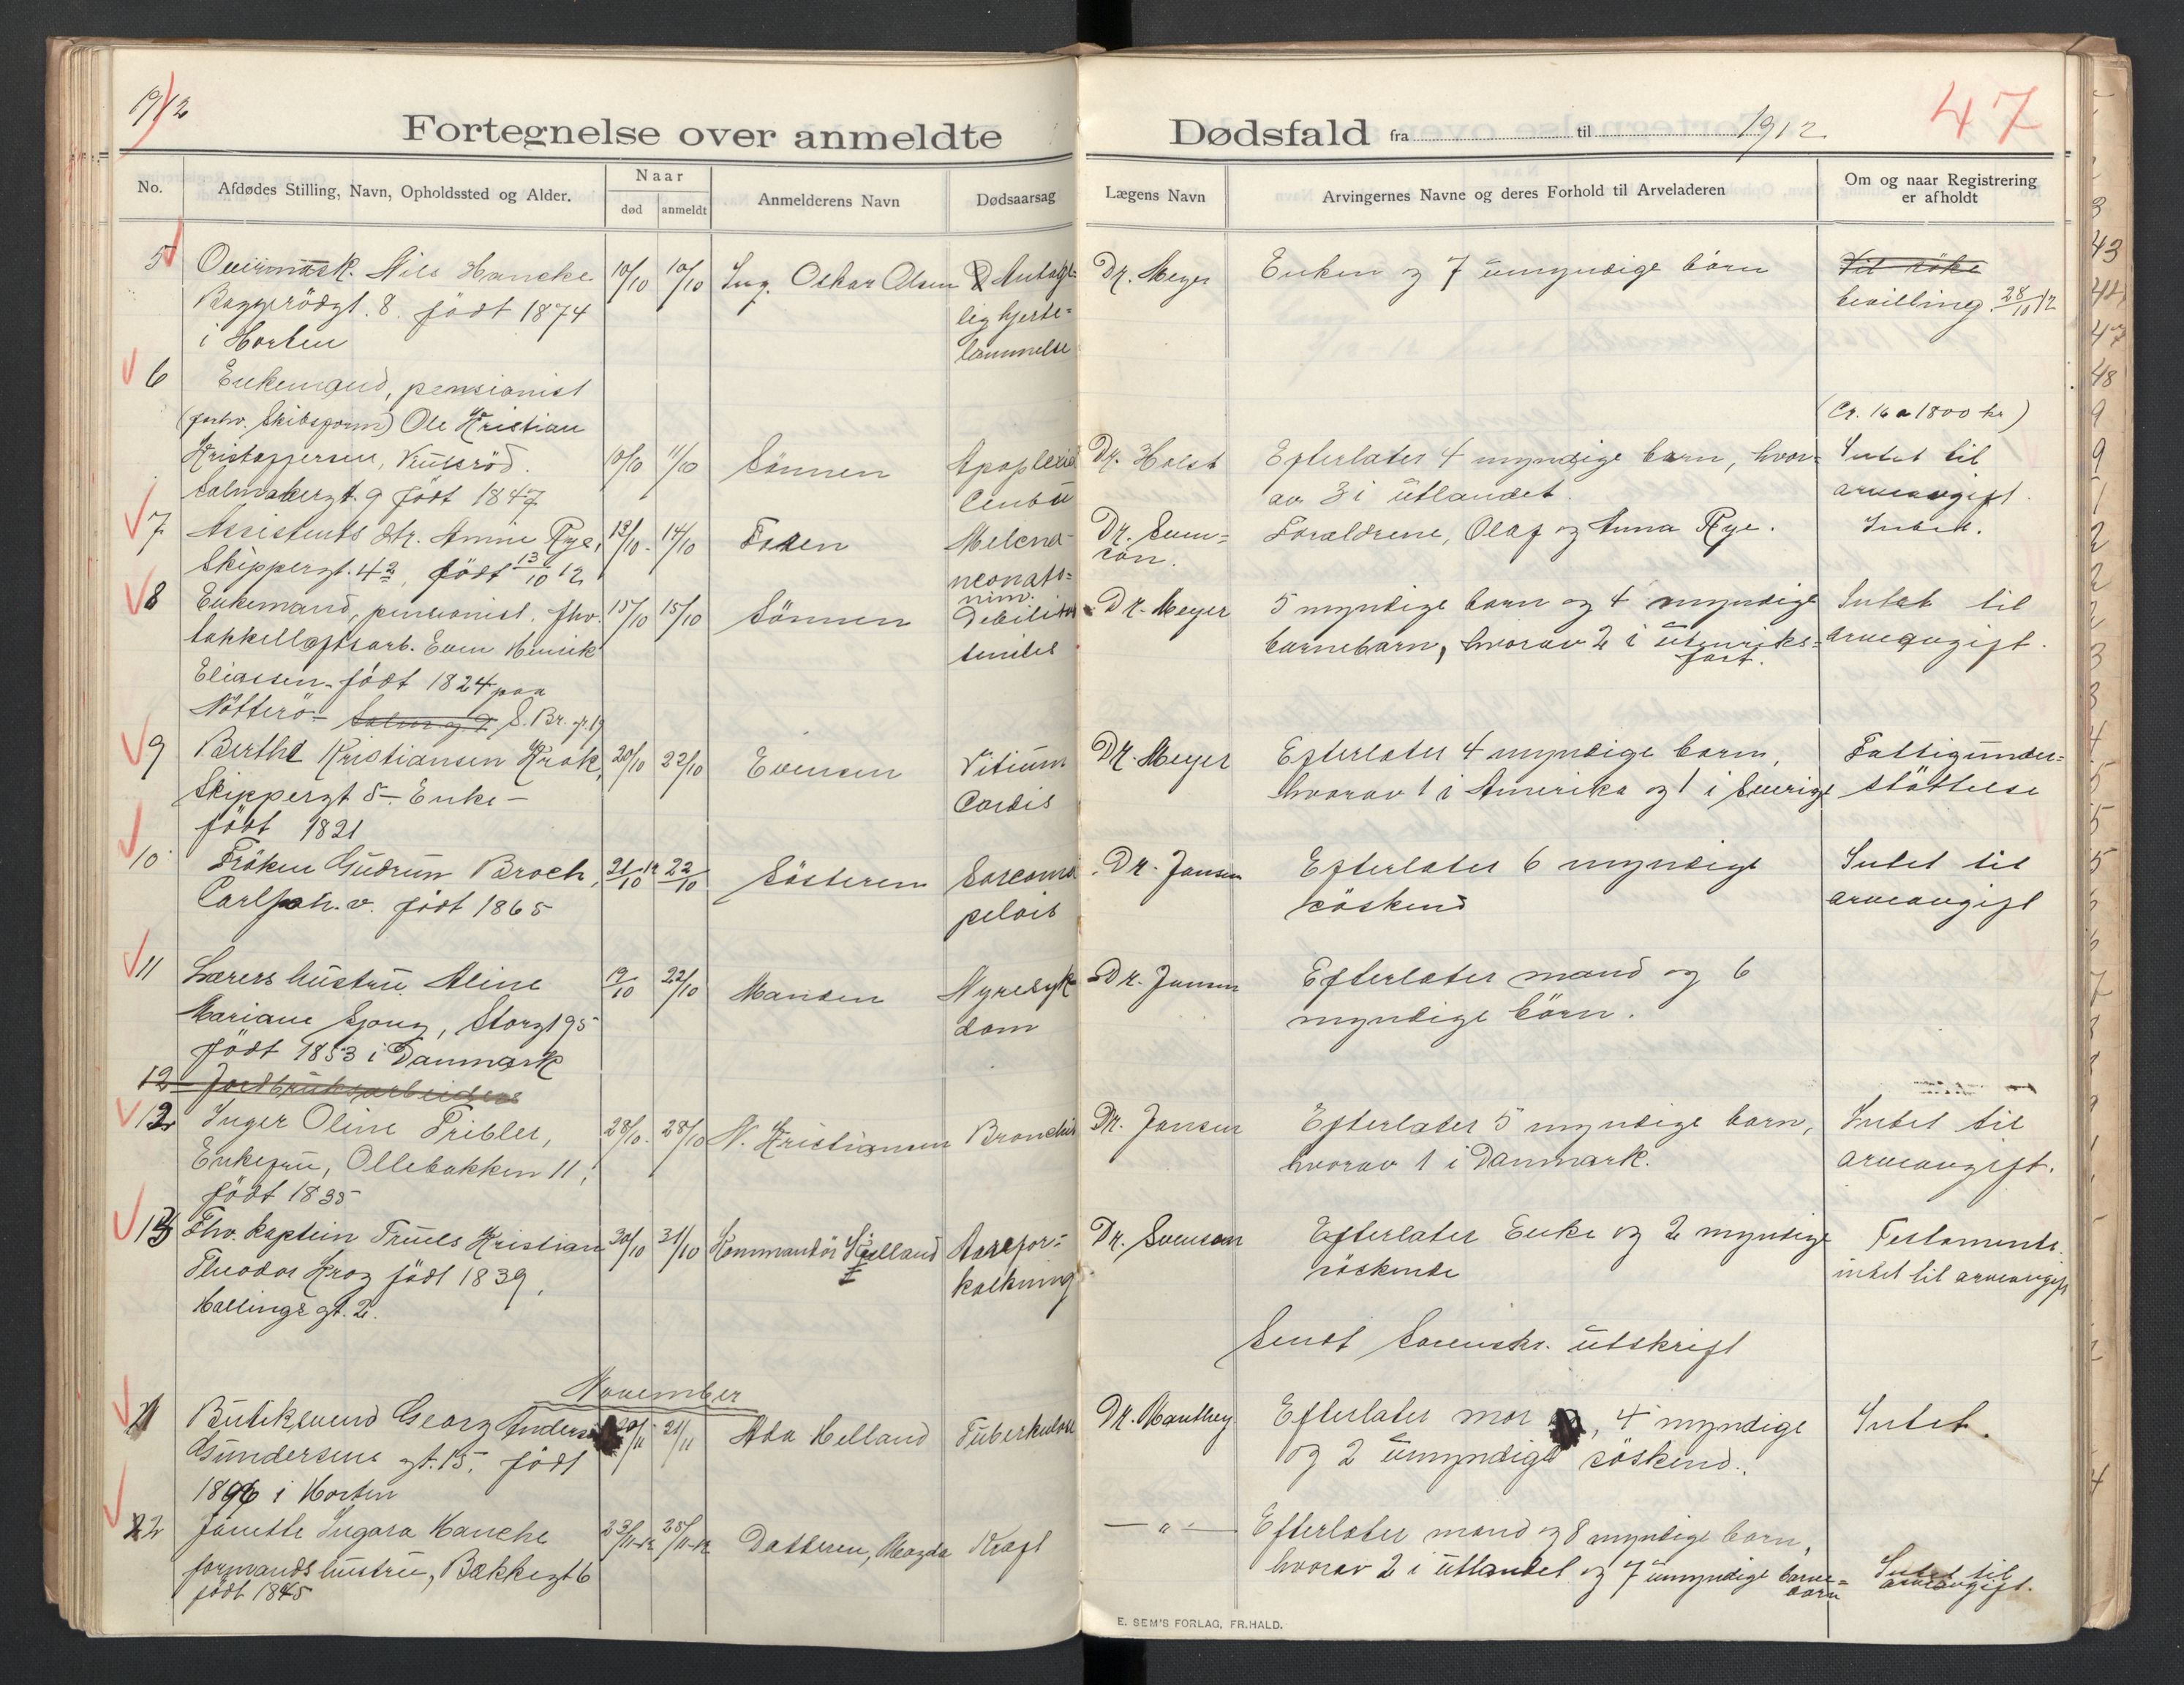 1912
Fortegnelse over anmeldte
No.
Afdødes Stilling, Navn, Opholdssted og Alder.
Naar
død
anmeldt
Anmelderens Navn
Dødsaarsag
5
Overmask. Nils Hancke
Baggerödgt. 8. født 1874
i Horten
10/10
10/10
Ing. Oskar Olsen
Antagelig hjerte=
lammelse
6
Enkemand, pensionist
(forhv. Skibsform) Ole Kristian
Kristoffersen,
Falmakergt. 9 født 1847
10/10
11/10
Sönnen
Apoplexia
7
Assistents dtr. Annie Rye,
Skippergt. 42, født 13/10 12
13/10
14/10
Faren
Melena
neonato=
rum.
8
Enkemand, pensionist. fhv.
takkelloftsarb. Even Henrik
Eliassen. født 1824 paa
Nötterö S. Br. gt. 19
15/10
15/10
Sönnen
Debilitas
senilis
9
Berthe Kristiansen Krok,
Skippergt 5 – Enke –
født 1821
20/10
22/10
Evensen
Vitium
Cordis
10
Fröken Gudrun Broch,
Carljoh. v. født 1865
21/10 12
22/10
Sösteren
Sarcoma
pelvis
11
Lærers hustru Aline
Mariane Sjong, Storgt 95
født 1853 i Danmark
19/10
22/10
Manden
Nyresyk
dom
12 Jordbruksarbeider
12
Inger Oline Tribler,
Enkefru, Ollebakken 11,
født 1835
28/10
28/10
N. Kristiansen
Bronchit
13
Fhv. kaptein Truels Kristian
Theodor Krog født 1839,
Hallings gt. 2.
30/10
31/10
Kommandör Kielland
Aarefor=
kalkning
November
21
Butiksvend Georg Anders
Gundersens gt. 15. født
1896 i Horten
20/11
21/11
Ada Helland
Tuberkulose
22
Janette Ingara Hanche
formands hustru, Bakkegt 6
født 1845
23/11-12
25/11-12
Datteren, Magda
Kræft
Dødsfald fra til 1912
47
Lægens Navn
Arvingernes Navne og deres Forhold til Arveladeren
Om og naar Registrering
er afholdt
Dr. Meyer
Enken og 7 umyndige börn
Vil söke
bevilling. 28/10 12
(Ca. 16 a 1800 kr)
Dr. Holst
Efterlater 4 myndige barn, hvor=
av 3 i utlandet.
Intet til
arveavgift.
Dr. Sven=
son.
Foraldrene, Olaf og Anna Rye.
Intet.
Dr. Meyer
5 myndige barn og 4 myndige
barnebarn, hvorav 2 i utenriks=
fart.
Intet til
arveavgift.
Dr. Meyer
Efterlater 4 myndige barn,
hvorav 1 i Amerika og 1 i Sverige
Fattigunder=
støttelse
Dr. Jansen
Efterlater 6 myndige
söskend
Intet til
arveavgift
Dr. Jansen
Efterlater mand og 6
myndige börn.
Dr. Jansen
Efterlater 5 myndige barn,
hvorav 1 i Danmark.
Intet til
arveavgift.
Dr. Svenson
Efterlater Enke og 2 myndige
söskende
Testamente.
intet til arveavgift
Sendt Sorenskr. utskrift
Dr. Manthey
Efterlater mor, 4 myndige
og 2 umyndige söskend.
Intet.
— " —
Efterlater mand og 8 myndige barn,
hvorav 2 i utlandet og 7 umyndige barne=
barn
Intet til
arveavgift.
E. SEM'S FORLAG, FR.HALD.